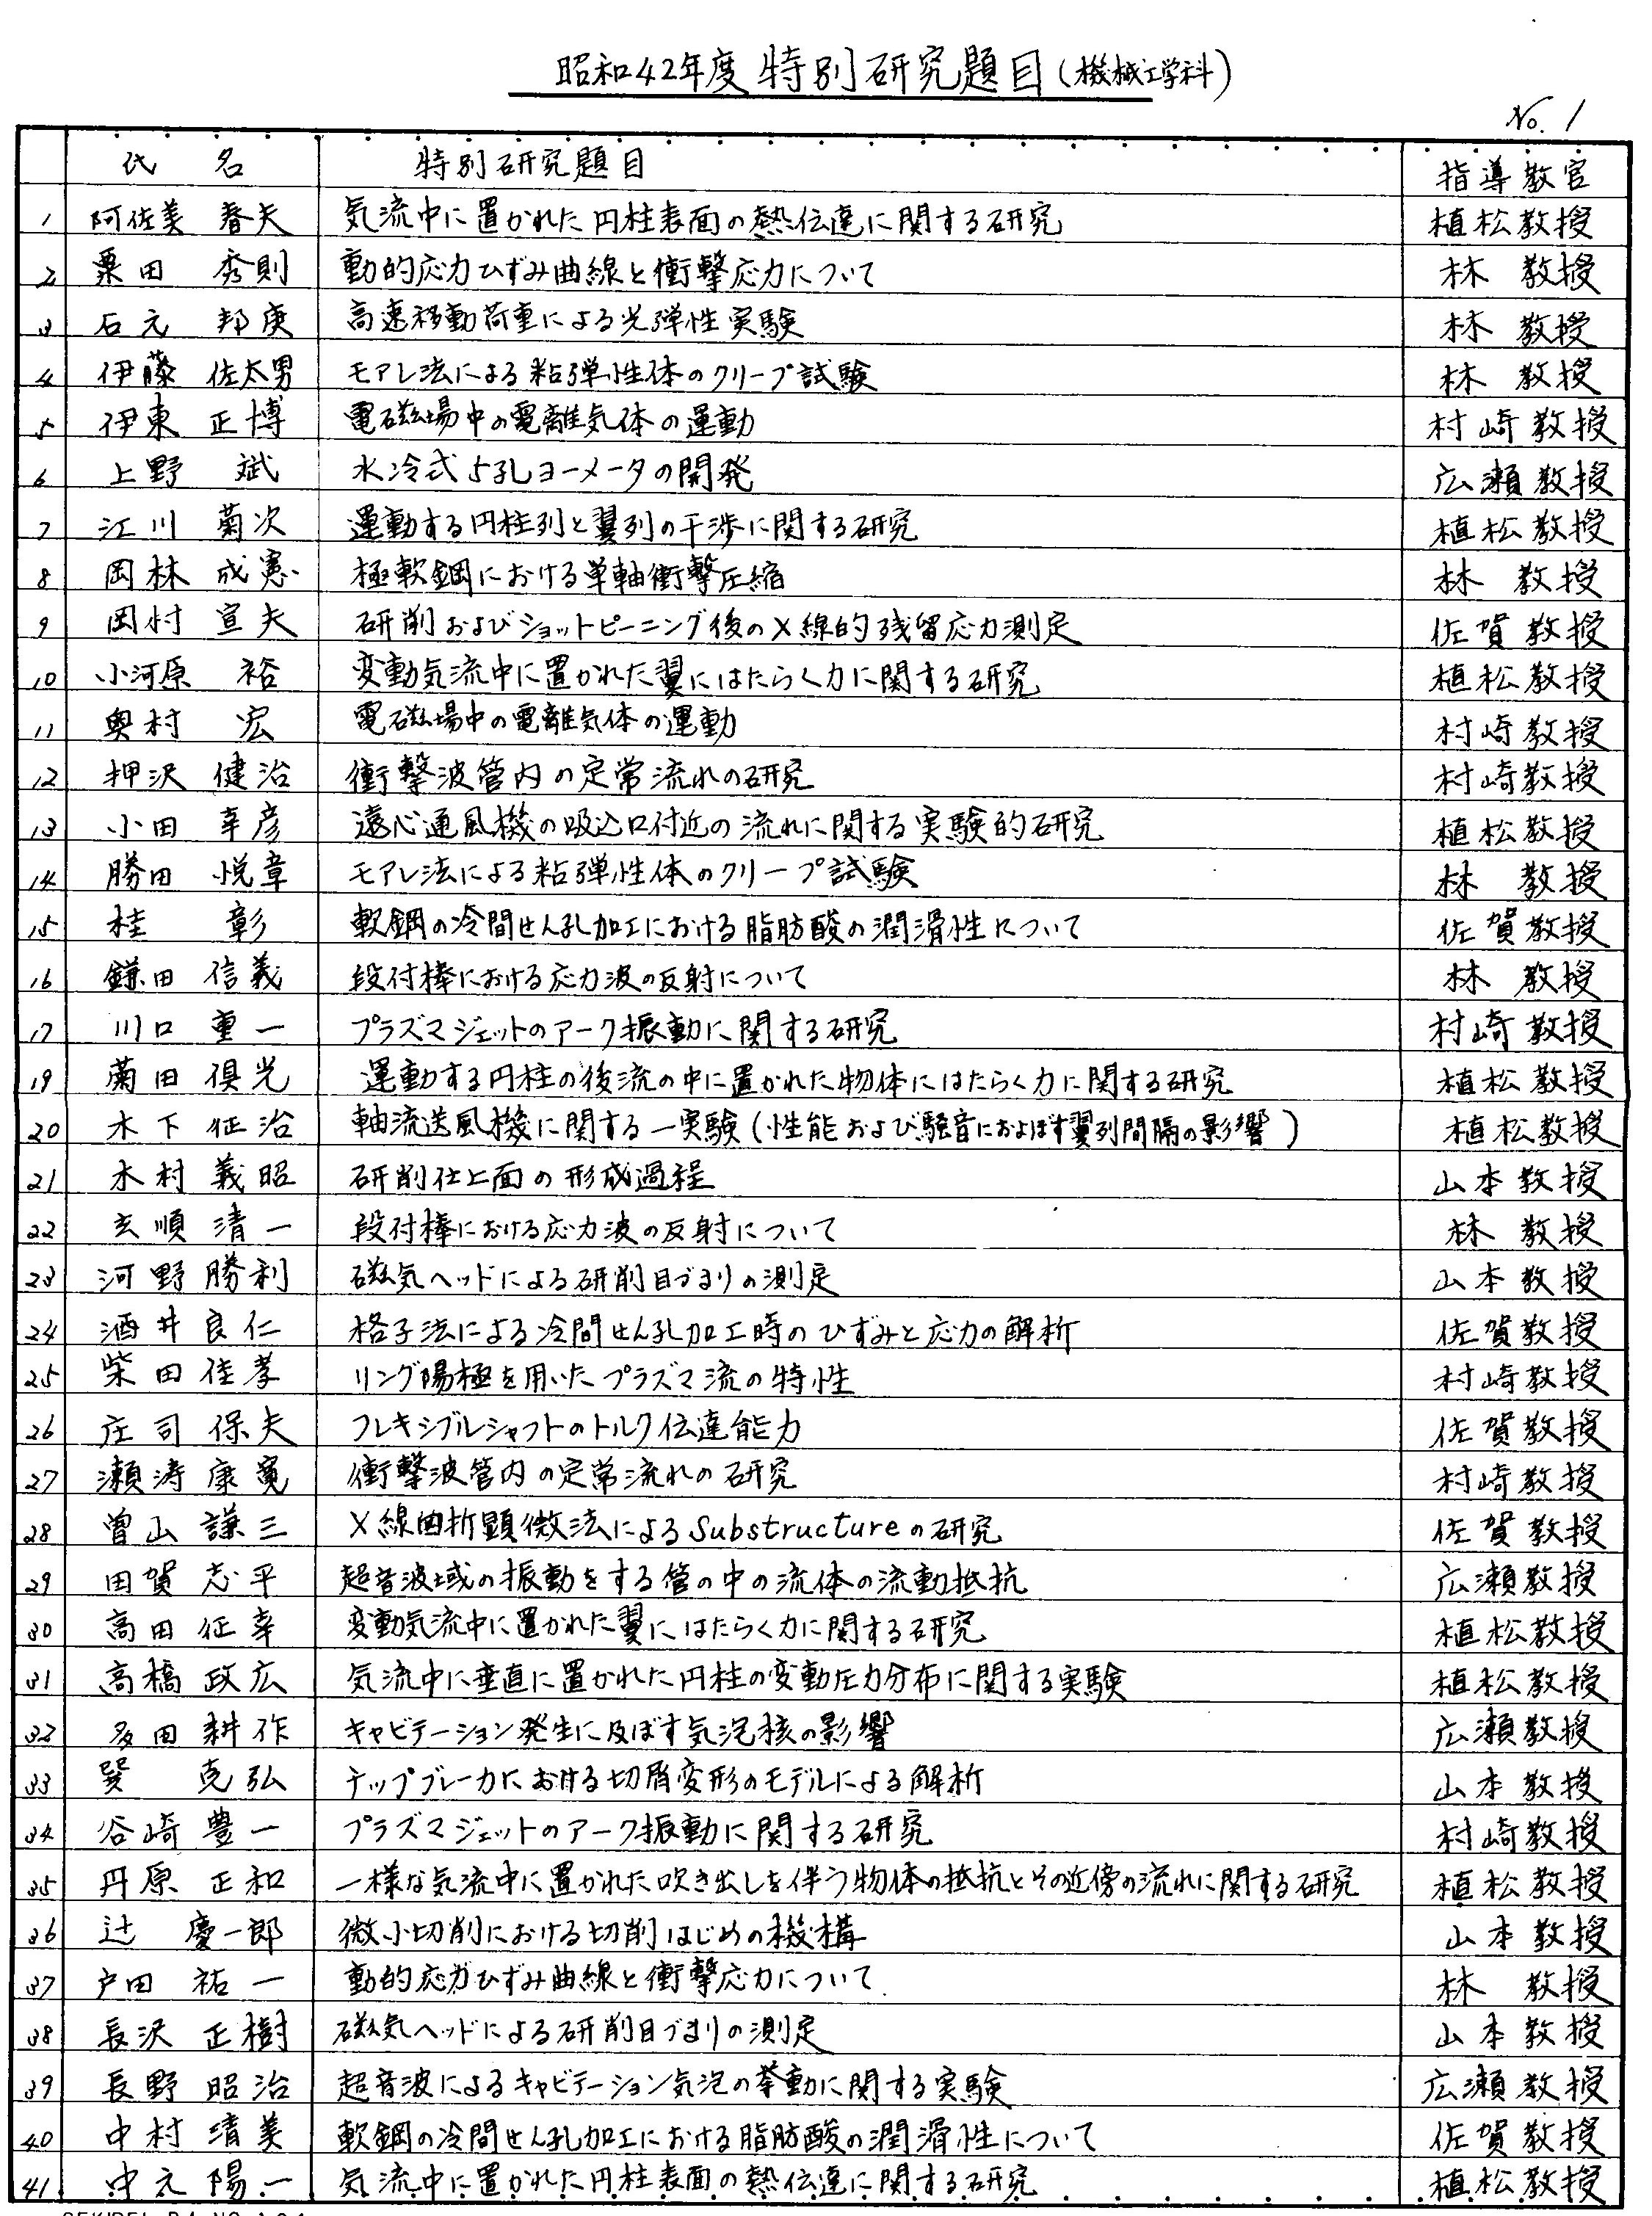 昭和42年度特別研究題目(機械工学科)
No. 1
氏 名 特別研究題目 指導教官
1 阿佐美 春夫 気流中に置かれた円柱表面の熱伝達に関する研究 植松教授
2 粟田 秀則 動的応力ひずみ曲線と衝撃応力について 林 教授
3 石元 邦庚 高速移動荷重による光弾性実験 林 教授
4 伊藤 佐太男 モアレ法による粘弾性体のクリープ試験 林 教授
5 伊東 正博 電磁場中の電離気体の運動 村崎教授
6 上野 斌 水冷式5孔ヨーメータの開発 広瀬教授
7 江川 菊次 運動する円柱列と翼列の干渉に関する研究 植松教授
8 岡林 成憲 極軟鋼における単軸衝撃圧縮 林 教授
9 岡村 宣夫 研削およびショットピーニング後のX線的残留応力測定 佐賀教授
10 小河原 裕 変動気流中に置かれた翼にはたらく力に関する研究 植松教授
11 奥村 宏 電磁場中の電離気体の運動 村崎教授
12 押沢 健治 衝撃波管内の定常流れの研究 村崎教授
13 小田 幸彦 遠心通風機の吸込口付近の流れに関する実験的研究 植松教授
14 勝田 悦章 モアレ法による粘弾性体のクリープ試験 林 教授
15 桂 彰 軟鋼の冷間せん孔加工における脂肪酸の潤滑性について 佐賀教授
16 鎌田 信義 段付棒における応力波の反射について 林 教授
17 川口 重一 プラズマジェットのアーク振動に関する研究 村崎教授
19 菊田 倶光 運動する円柱の後流の中に置かれた物体にはたらく力に関する研究 植松教授
20 木下 征治 軸流送風機に関する一実験(性能および騒音におよぼす翼列間隔の影響) 植松教授
21 木村 義昭 研削仕上面の形成過程 山本教授
22 玄順 清一 段付棒における応力波の反射について 林 教授
23 河野 勝利 磁気ヘッドによる研削目づまりの測定 山本教授
24 酒井 良仁 格子法による冷間せん孔加工時のひずみと応力の解析 佐賀教授
25 柴田 佳孝 リング陽極を用いたプラズマ流の特性 村崎教授
26 庄司 保夫 フレキシブルシャフトのトルク伝達能力 佐賀教授
27 瀬涛 康寛 衝撃波管内の定常流れの研究 村崎教授
28 曽山 謙三 X線回折顕微法によるSubstructureの研究 佐賀教授
29 田賀 志平 超音波域の振動をする管の中の流体の流動抵抗 広瀬教授
30 高田 征幸 変動気流中に置かれた翼にはたらく力に関する研究 植松教授
31 高橋 政広 気流中に垂直に置かれた円柱の変動圧力分布に関する実験 植松教授
32 多田 耕作 キャビテーション発生に及ぼす気泡核の影響 広瀬教授
33 巽 克弘 チップブレーカにおける切屑変形のモデルによる解析 山本教授
34 谷崎 豊一 プラズマジェットのアーク振動に関する研究 村崎教授
35 丹原 正和 一様な気流中に置かれた吹き出しを伴う物体の抵抗とその近傍の流れに関する研究 植松教授
36 辻 慶一郎 微小切削における切削はじめの機構 山本教授
37 戸田 祐一 動的応力ひずみ曲線と衝撃応力について 林 教授
38 長沢 正樹 磁気ヘッドによる研削目づまりの測定 山本教授
39 長野 昭治 超音波によるキャビテーション気泡の挙動に関する実験 広瀬教授
40 中村 清美 軟鋼の冷間せん孔加工における脂肪酸の潤滑性について 佐賀教授
41 中元 陽一 気流中に置かれた円柱表面の熱伝達に関する研究 植松教授